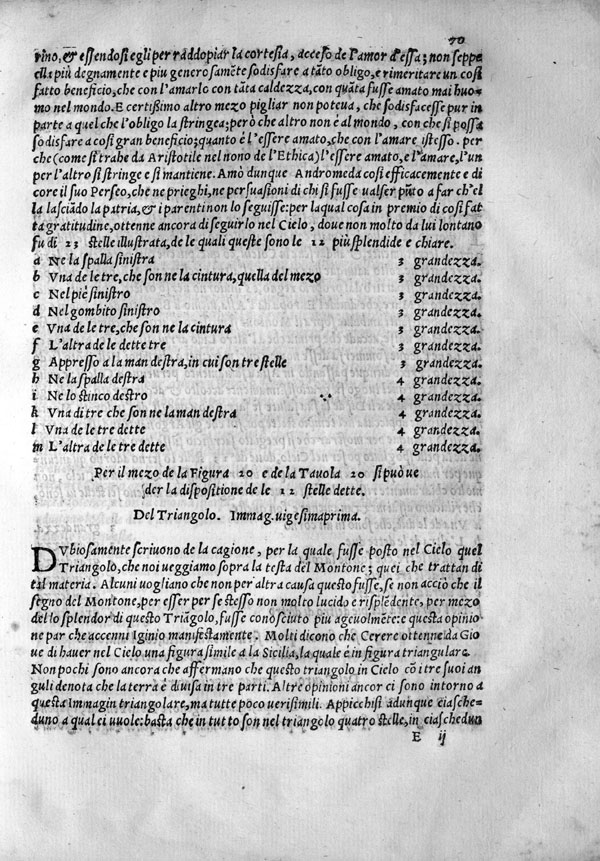 70
rino, & essendosi egli per raddopiar la cortesia, acceso de l'amor d'essa; non seppe
ella più degnamente e piu generosamẽte sodisfare a tãto obligo, e rimeritare un cosi
fatto beneficio, che con l'amarlo con tãta caldezza, con quãta fusse amato mai huo=
mo nel mondo. E certißimo altro mezo pigliar non poteua, che sodisfacesse pur in
parte a quel che l'obligo la stringea; però che altro non è al mondo, con che si possa
sodisfare a cosi gran beneficio; quanto è l'essere amato, che con l'amare istesso. per
che (come si trahe da Aristotile nel nono de l'Ethica) l'essere amato, e l'amare, l'un
per l'altro si stringe e si mantiene. Amò dunque Andromeda cosi efficacemente e di
core il suo Perseo, che ne prieghi, ne persuasioni di chi si fusse ualser pũto a far ch'el
la lasciãdo la patria, & i parenti non lo seguisse: per laqual cosa in premio di cosi fat
ta gratitudine, ottenne ancora di seguirlo nel Cielo, doue non molto da lui lontano
fu di 23 stelle illustrata, de le quali queste sono le 12 più splendide e chiare.
a Ne la spalla sinistra 3 grandezza.
b Vna de le tre, che son ne la cintura, quella del mezo 3 grandezza.
c Nel piè sinistro 3 grandezza.
d Nel gombito sinistro 3 grandezza.
e Vna de le tre, che son ne la cintura 3 grandezza.
f L'altra de le dette tre 3 grandezza.
g Appresso a la man destra, in cui son tre stelle 3 grandezza.
h Ne la spalla destra 4 grandezza.
i Ne lo stinco destro 4 grandezza.
k Vna di tre che son ne la man destra 4 grandezza.
l Vna de le tre dette 4 grandezza.
m L'altra de le tre dette 4 grandezza.
Per il mezo de la Figura 20 e de la Tauola 20 si può ue
der la dispositione de le 12 stelle dette.
Del Triangolo. Immag. uigesimaprima.
DVbiosamente scriuono de la cagione, per la quale fusse posto nel Cielo quel
Triangolo, che noi ueggiamo sopra la testa del Montone; quei che trattan di
tal materia. Alcuni uogliano che non per altra causa questo fusse, se non acciò che il
segno del Montone, per esser per se stesso non molto lucido e risplẽdente, per mezo
del lo splendor di questo Triãgolo, fusse conosciuto piu ageuolmẽte: e questa opinio
ne par che accenni Iginio manifestamente. Molti dicono che Cerere ottenne da Gio
ue di hauer nel Cielo una figura simile a la Sicilia, la quale è in figura triangulare.
Non pochi sono ancora che affermano che questo triangolo in Cielo cõ i tre suoi an
guli denota che la terra è diuisa in tre parti. Altre opinioni ancor ci sono intorno a
questa Immagin triangolare, ma tutte poco uerisimili. Appicchisi adunque ciasche=
duno a qual ei uuole: basta che in tutto son nel triangolo quatro stelle, in ciaschedun
E ij